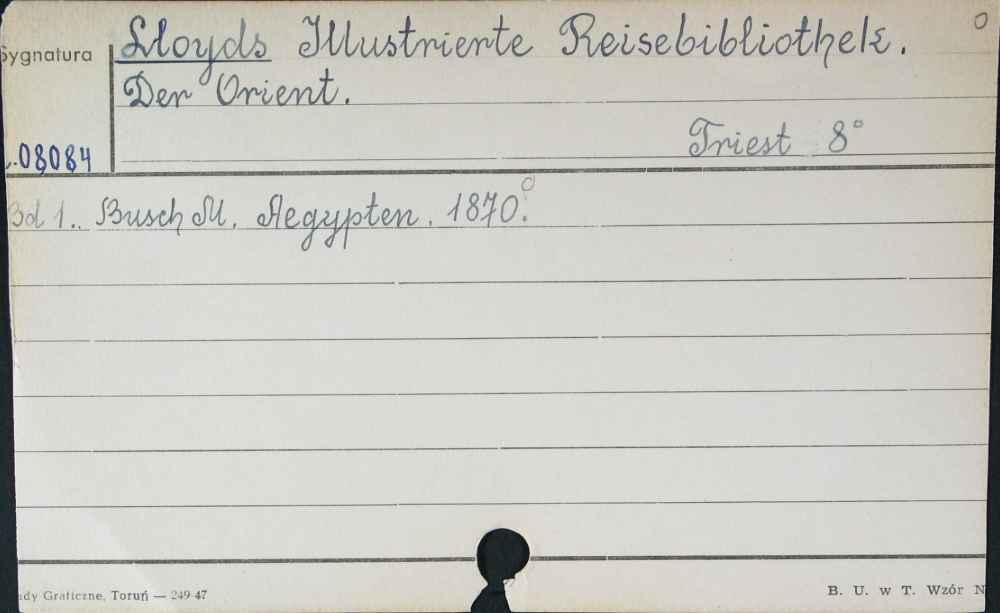 Lloyds Illustrierte Reisebibliothek.
Sygnatura
Der Orient.
Triest 8°
08084
Bd 1.. Busch M. Aegypten. 1870.
Graficzne, Toruń — 249-47
B. U. w T. Wzór N